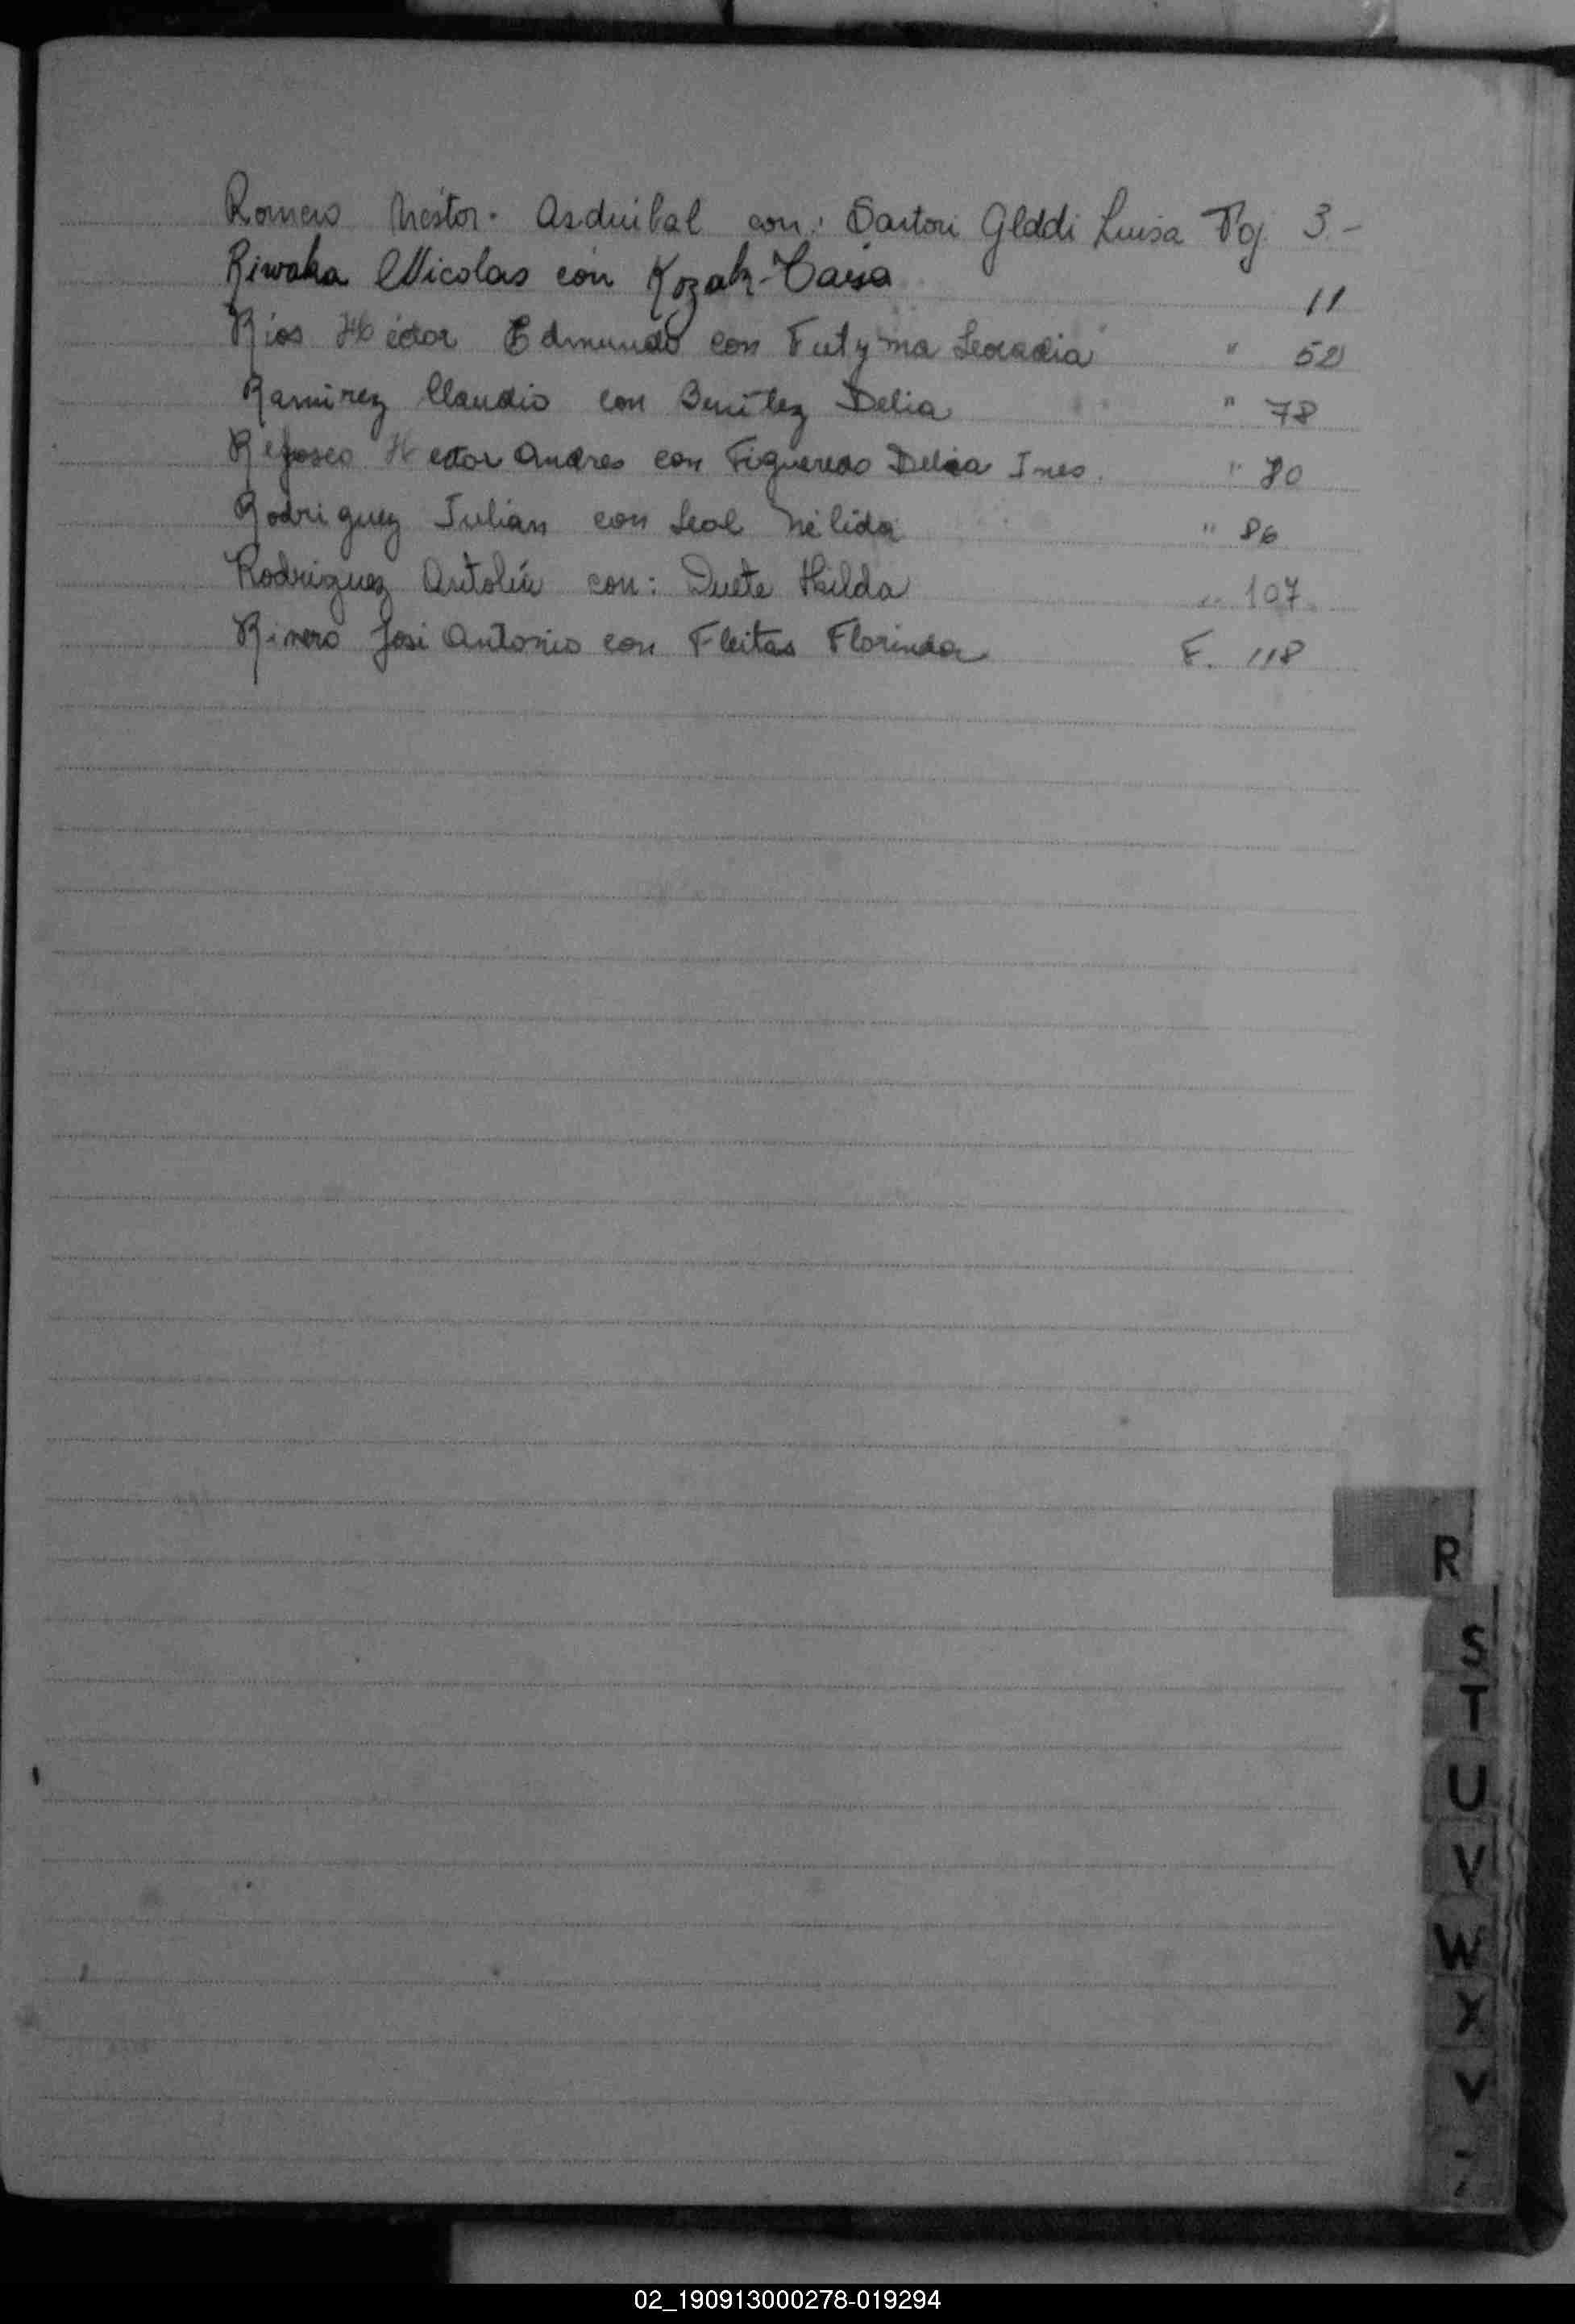 Romero Néstor. Asduibal con: Sartori Glddi Luisa Foj. 3.-
Riwaka Nicolas con Kozak 11
Ríos Héctor Edmundo con Futyma Leocadia " 52
Ramirez Claudio con Benítez Delia " 78
Héctor Andres con Figueredo Delia Ines. " 80
Rodriguez Julian con Leal Nélida " 86
Rodriguez Antolín con: Duete Hilda " 107.
José Antonio con Fleitas Florinda F. 118
R
S
T
U
V
W
X
Y
02_190913000278-019294